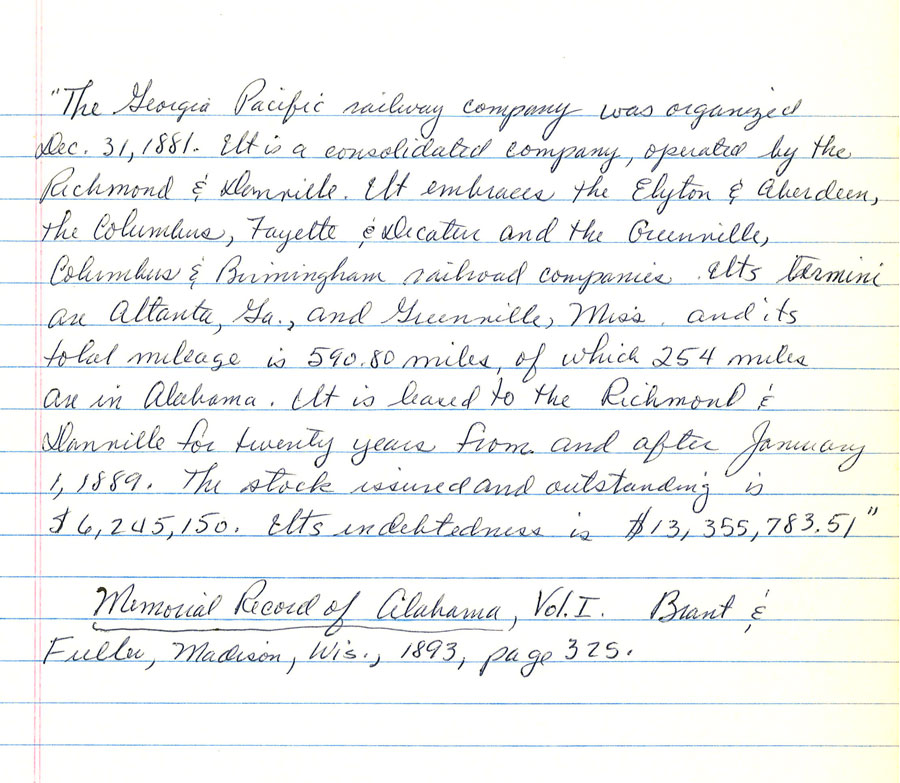 "The Georgia Pacific railway company was organized
Dec. 31, 1881. It is a consolidated company, operated by the
Richmond & Danville. It embraces the Elyton & Aberdeen,
the Columbus, Fayette & Decatur and the Greenville,
Columbus & Birmingham railroad companies. Its termini
are Altanta, Ga., and Greenville, Miss. and its
total mileage is 590.80 miles, of which 254 miles
are in Alabama. It is leased to the Richmond &
Danville for twenty years from and after January
1, 1889. The stock issured and outstanding is
$6,245,150. Its indebtedness is $13,355,783.51"
Memorial Record of Alabama, Vol. I. Brant &
Fuller, Madison, Wis., 1893, page 325.